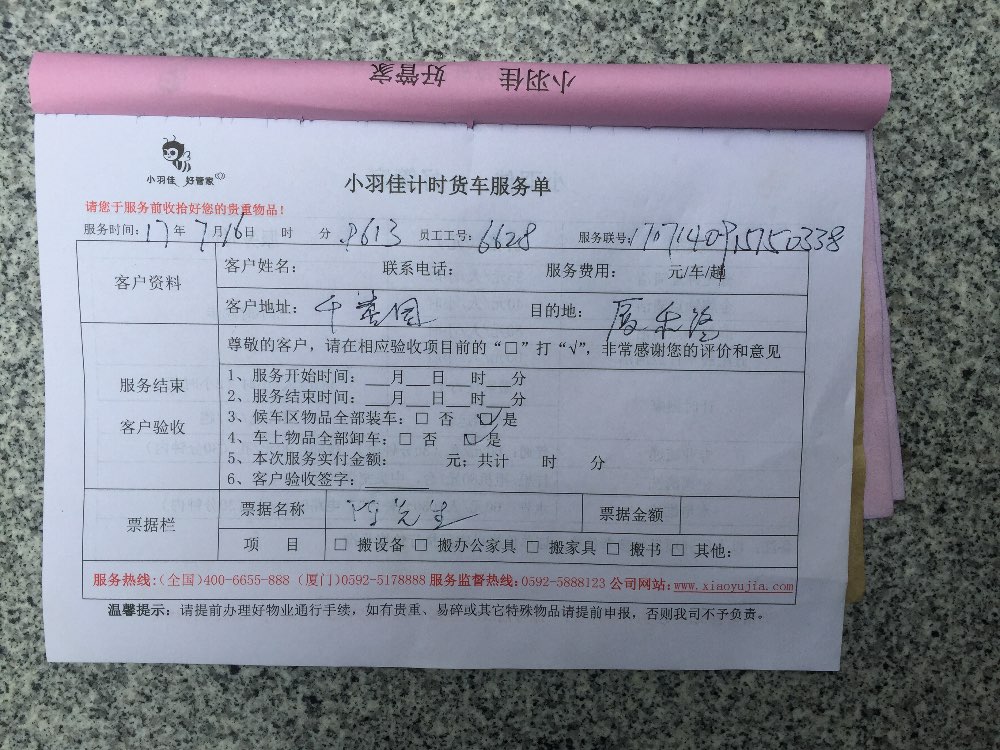 小羽佳 好管家
小羽佳 好管家
小羽佳计时货车服务单
请您于服务前收拾好您的贵重物品！
服务时间：17年7月16日 时 分 8613 员工工号：6628 服务联号：
客户资料
客户姓名： 联系电话： 服务费用： 元/车/趟
客户地址： 目的地：
尊敬的客户，请在相应验收项目前的“□”打“√”，非常感谢您的评价和意见
服务结束
客户验收
1、服务开始时间：___月___日___时___分
2、服务结束时间：___月___日___时___分
3、候车区物品全部装车：□ 否 ☑是
4、车上物品全部卸车：□ 否 ☑是
5、本次服务实付金额： 元；共计 时 分
6、客户验收签字：________
票据栏
票据名称 先生 票据金额
项 目 □ 搬设备 □ 搬办公家具 □ 搬家具 □ 搬书 □ 其他：
服务热线：(全国)400-6655-888 (厦门)0592-5178888 服务监督热线：0592-5888123 公司网站：www.xiaoyujia.com
温馨提示：请提前办理好物业通行手续，如有贵重、易碎或其它特殊物品请提前申报，否则我司不予负责。